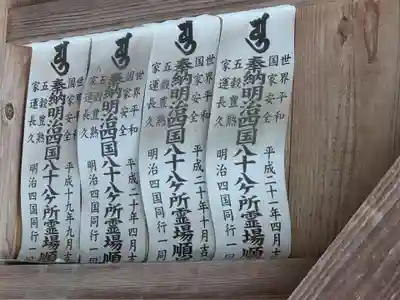 世界平和
国家安全
平成二十一年四月吉
奉納明治四国八十八ヶ所霊場順
五穀豊熟
家運長久
明治四国同行一
世界平和
国家安全
平成二十年十月吉
奉納明治四国八十八ヶ所霊場順
五穀豊熟
家運長久
明治四国同行一
世界平和
国家安全
奉納明治四国八十八ヶ所霊場順
五穀豊熟
家運長久
明治四国同行一
世界平和
国家安全
平成十九年九月吉
奉納明治四国八十八ヶ所霊場順
五穀豊熟
家運長久
明治四国同行一